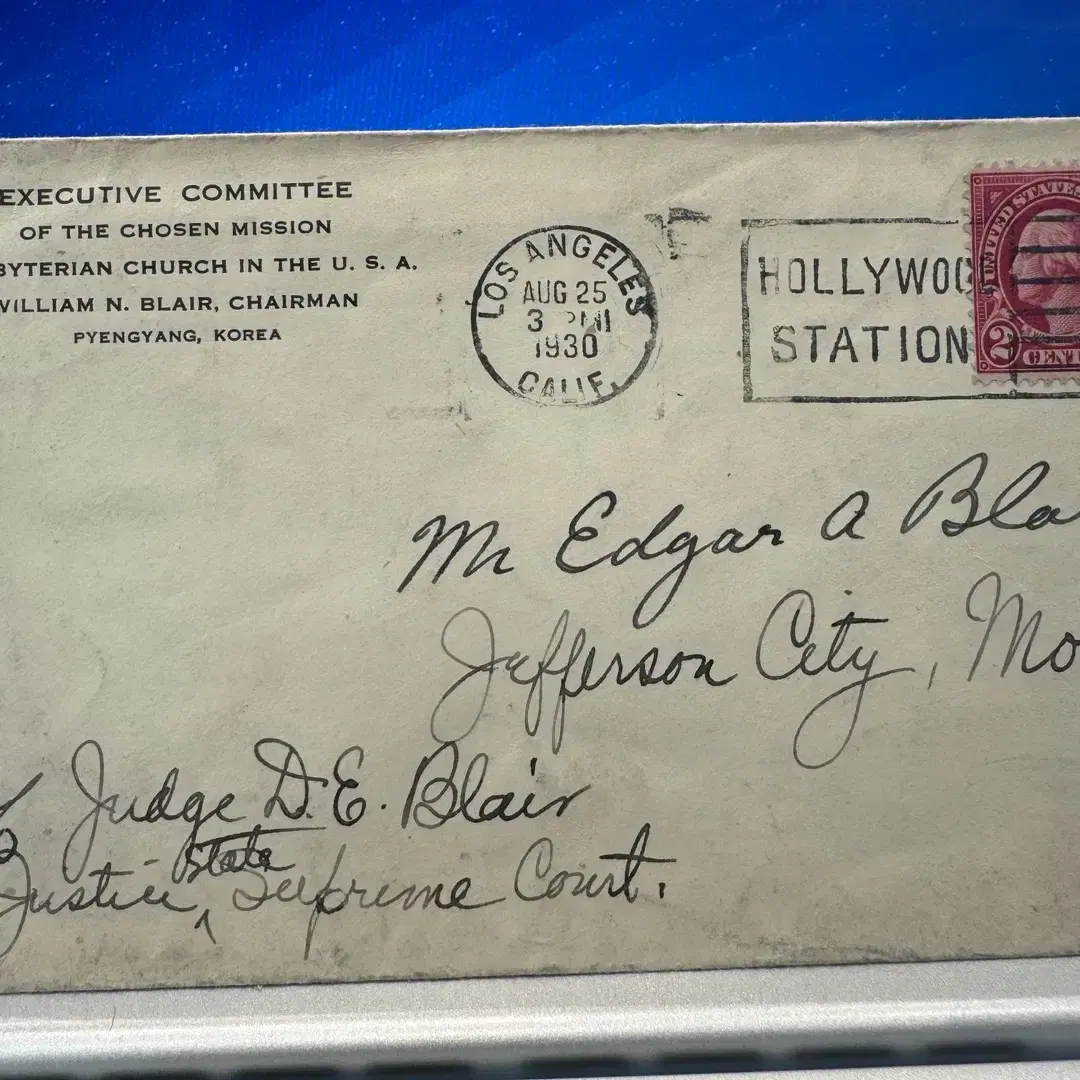 EXECUTIVE COMMITTEE
OF THE CHOSEN MISSION
BYTERIAN CHURCH IN THE U. S. A.
WILLIAM N. BLAIR, CHAIRMAN
PYENGYANG, KOREA
LOS ANGELES
AUG 25
3 PM
1930
CALIF.
HOLLYWOO
STATION
UNITED STATES
2 CENT
Mr Edgar A Bla
Jefferson City, Mo
Judge D.E. Blair
Justice, State Supreme Court.